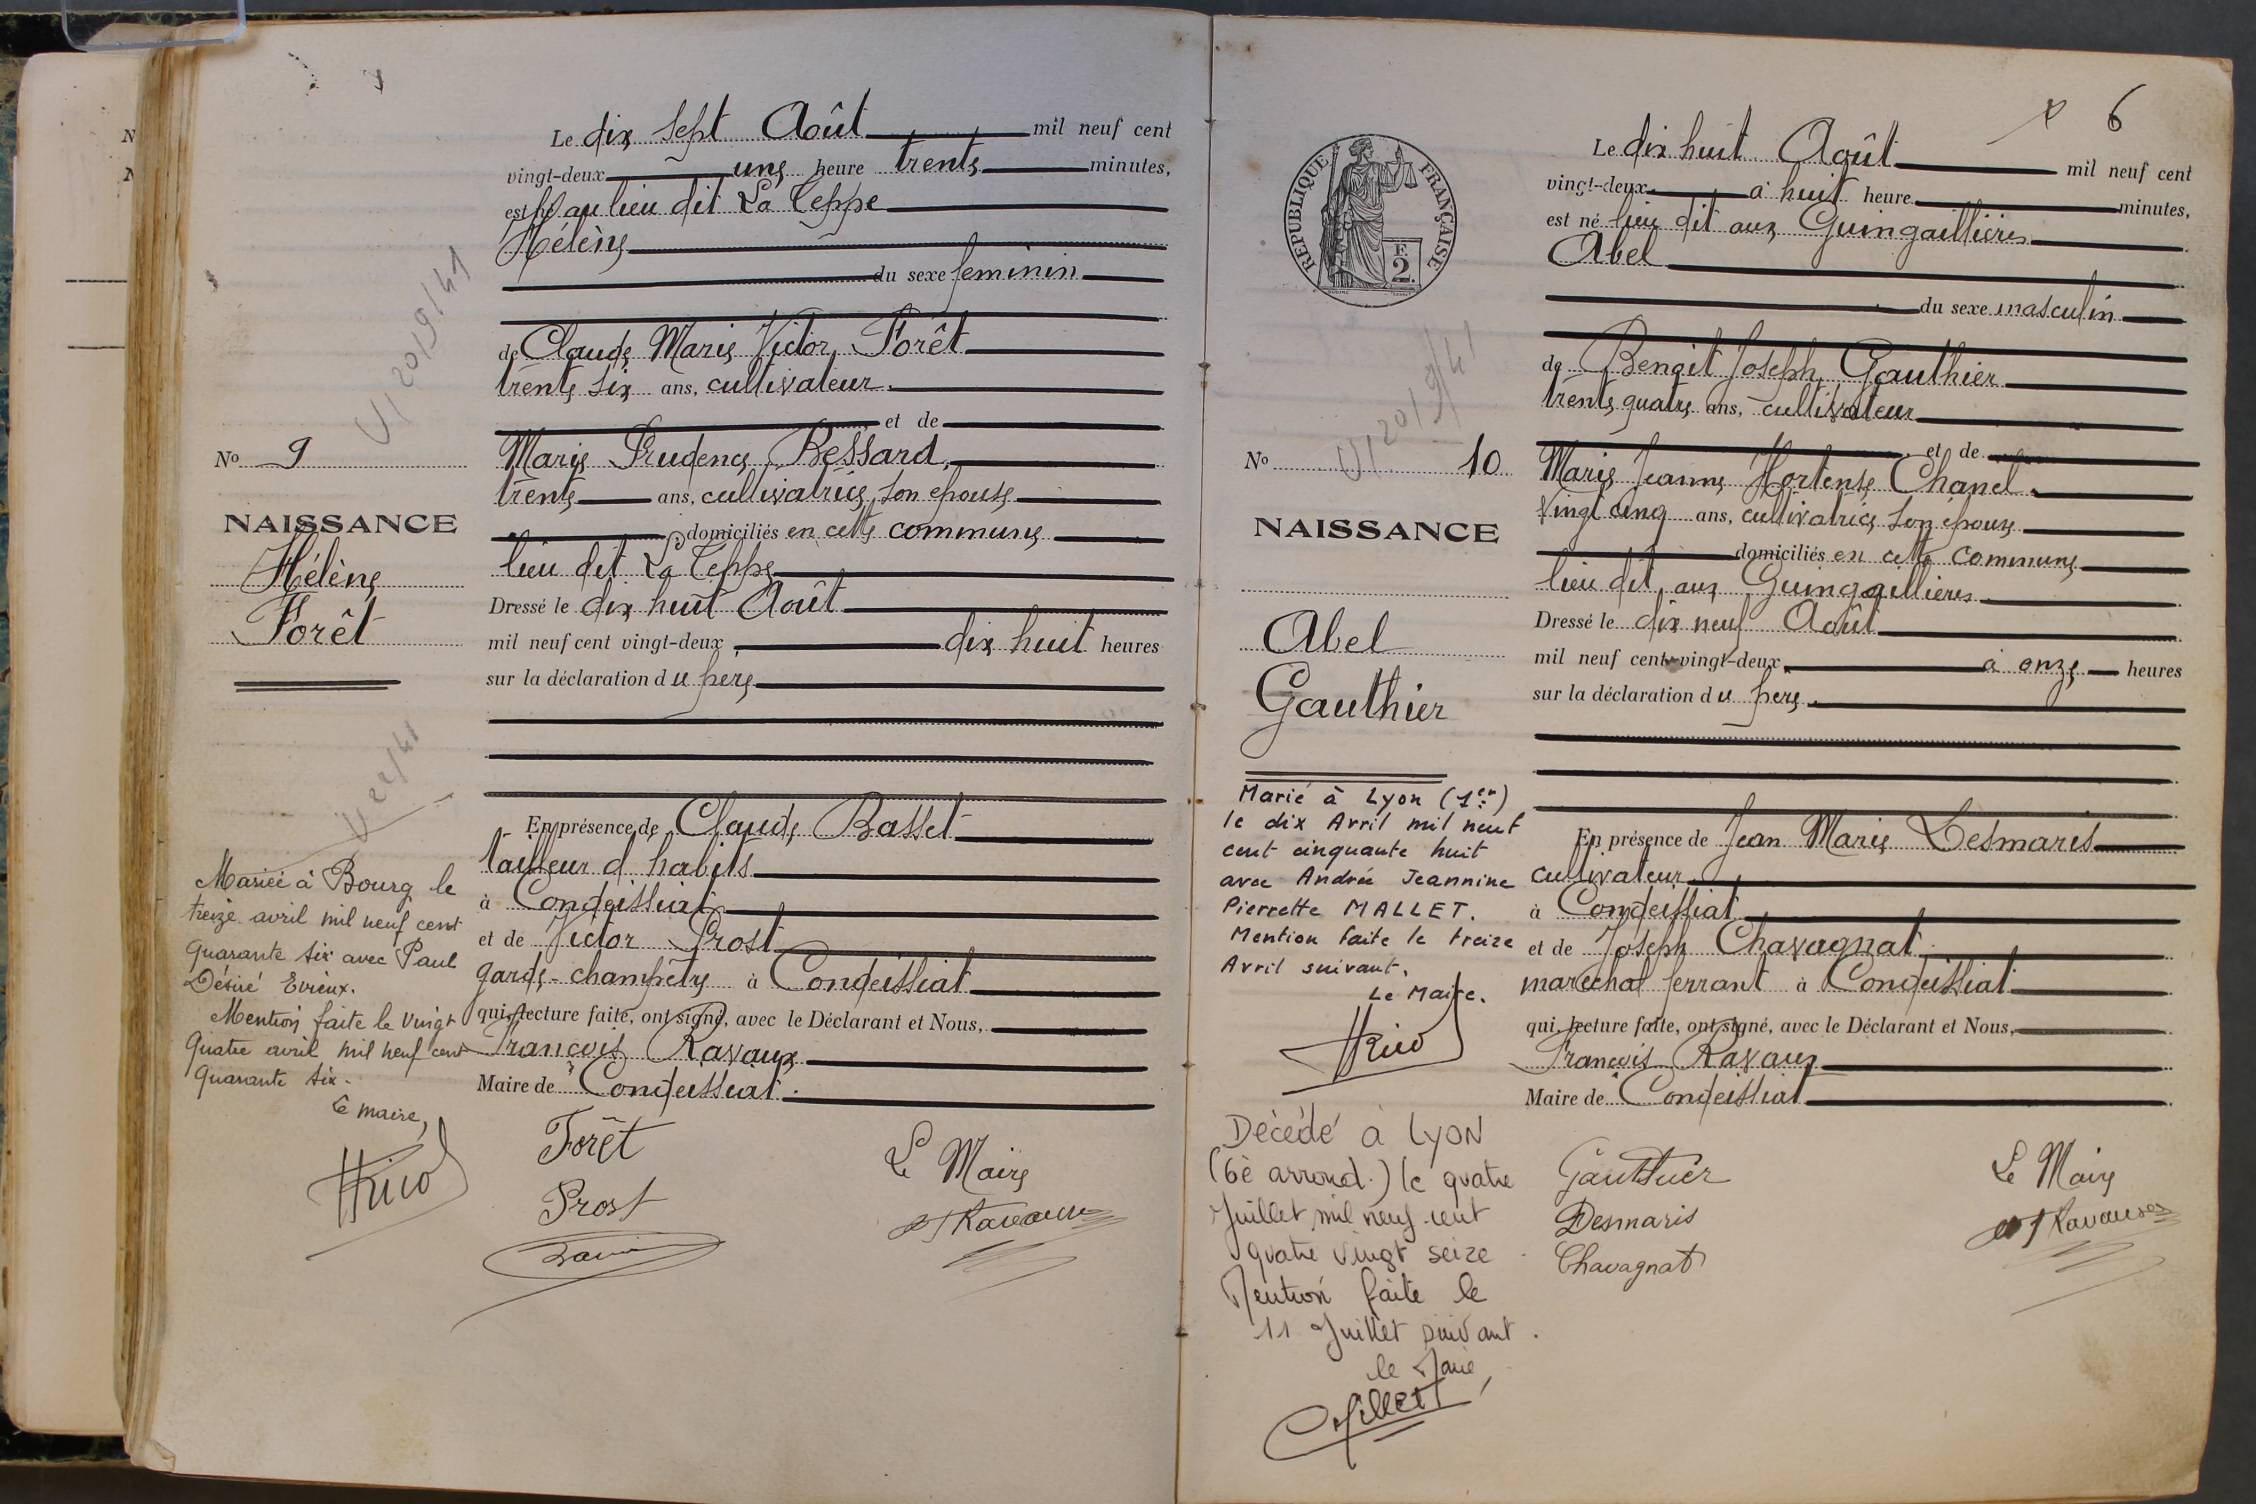 Le dix sept Août mil neuf cent
vingt-deux une heure trente minutes,
est né au lieu dit La Teppe
Hélène
du sexe feminin
de Claude Marie Victor Forêt
trente six ans, cultivateur
et de
Marie Prudence Bessard
trente ans, cultivatrice, son epouse
domiciliés en cette commune
lieu dit La Teppe
Dressé le dix huit Août
mil neuf cent vingt-deux, dix huit heures
sur la déclaration du pere
En présence de Claude Basset
tailleur d'habits
à Condeissiat
et de Victor Prost
garde-champêtre à Condeissiat
qui, lecture faite, ont signé, avec le Déclarant et Nous,
François Ravaux
Maire de Condeissiat.
Forêt
Prost
Le Maire
Ravaux
V, 20/9/41
No 9
NAISSANCE
Hélène
Forêt
V 22/41
Mariée à Bourg le
treize avril mil neuf cent
quarante six avec Paul
Désiré Evieux.
Mention faite le vingt
quatre avril mil neuf cent
quarante six.
Le maire,
6
REPUBLIQUE FRANÇAISE
F.
2
Le dix huit Août mil neuf cent
vingt-deux à huit heure minutes,
est né lieu dit aux Guingaillières
Abel
du sexe masculin
de Benoit Joseph Gauthier
trente quatre ans, cultivateur
et de
Marie Jeanne Hortense Chanel
vingt cinq ans, cultivatrice son épouse
domiciliés en cette commune
lieu dit aux Guingaillières
Dressé le dix neuf Août
mil neuf cent vingt-deux, à onze heures
sur la déclaration du père
En présence de Jean Marie Desmaris
cultivateur
à Condeissiat
et de Joseph Chavagnat
maréchal ferrant à Condeissiat
qui, lecture faite, ont signé, avec le Déclarant et Nous,
François Ravaux
Maire de Condeissiat
Gauthier
Desmaris
Chavagnat
Le Maire
Ravaux
V, 20/9/41
No 10
NAISSANCE
Abel
Gauthier
Marié à Lyon (1er)
le dix Avril mil neuf
cent cinquante huit
avec Andrée Jeannine
Pierrette MALLET.
Mention faite le treize
Avril suivant.
Le Maire.
Décédé à LYON
(6è arrond.) le quatre
Juillet mil neuf cent
quatre vingt seize
Mention faite le
11 Juillet suivant.
le Maire,